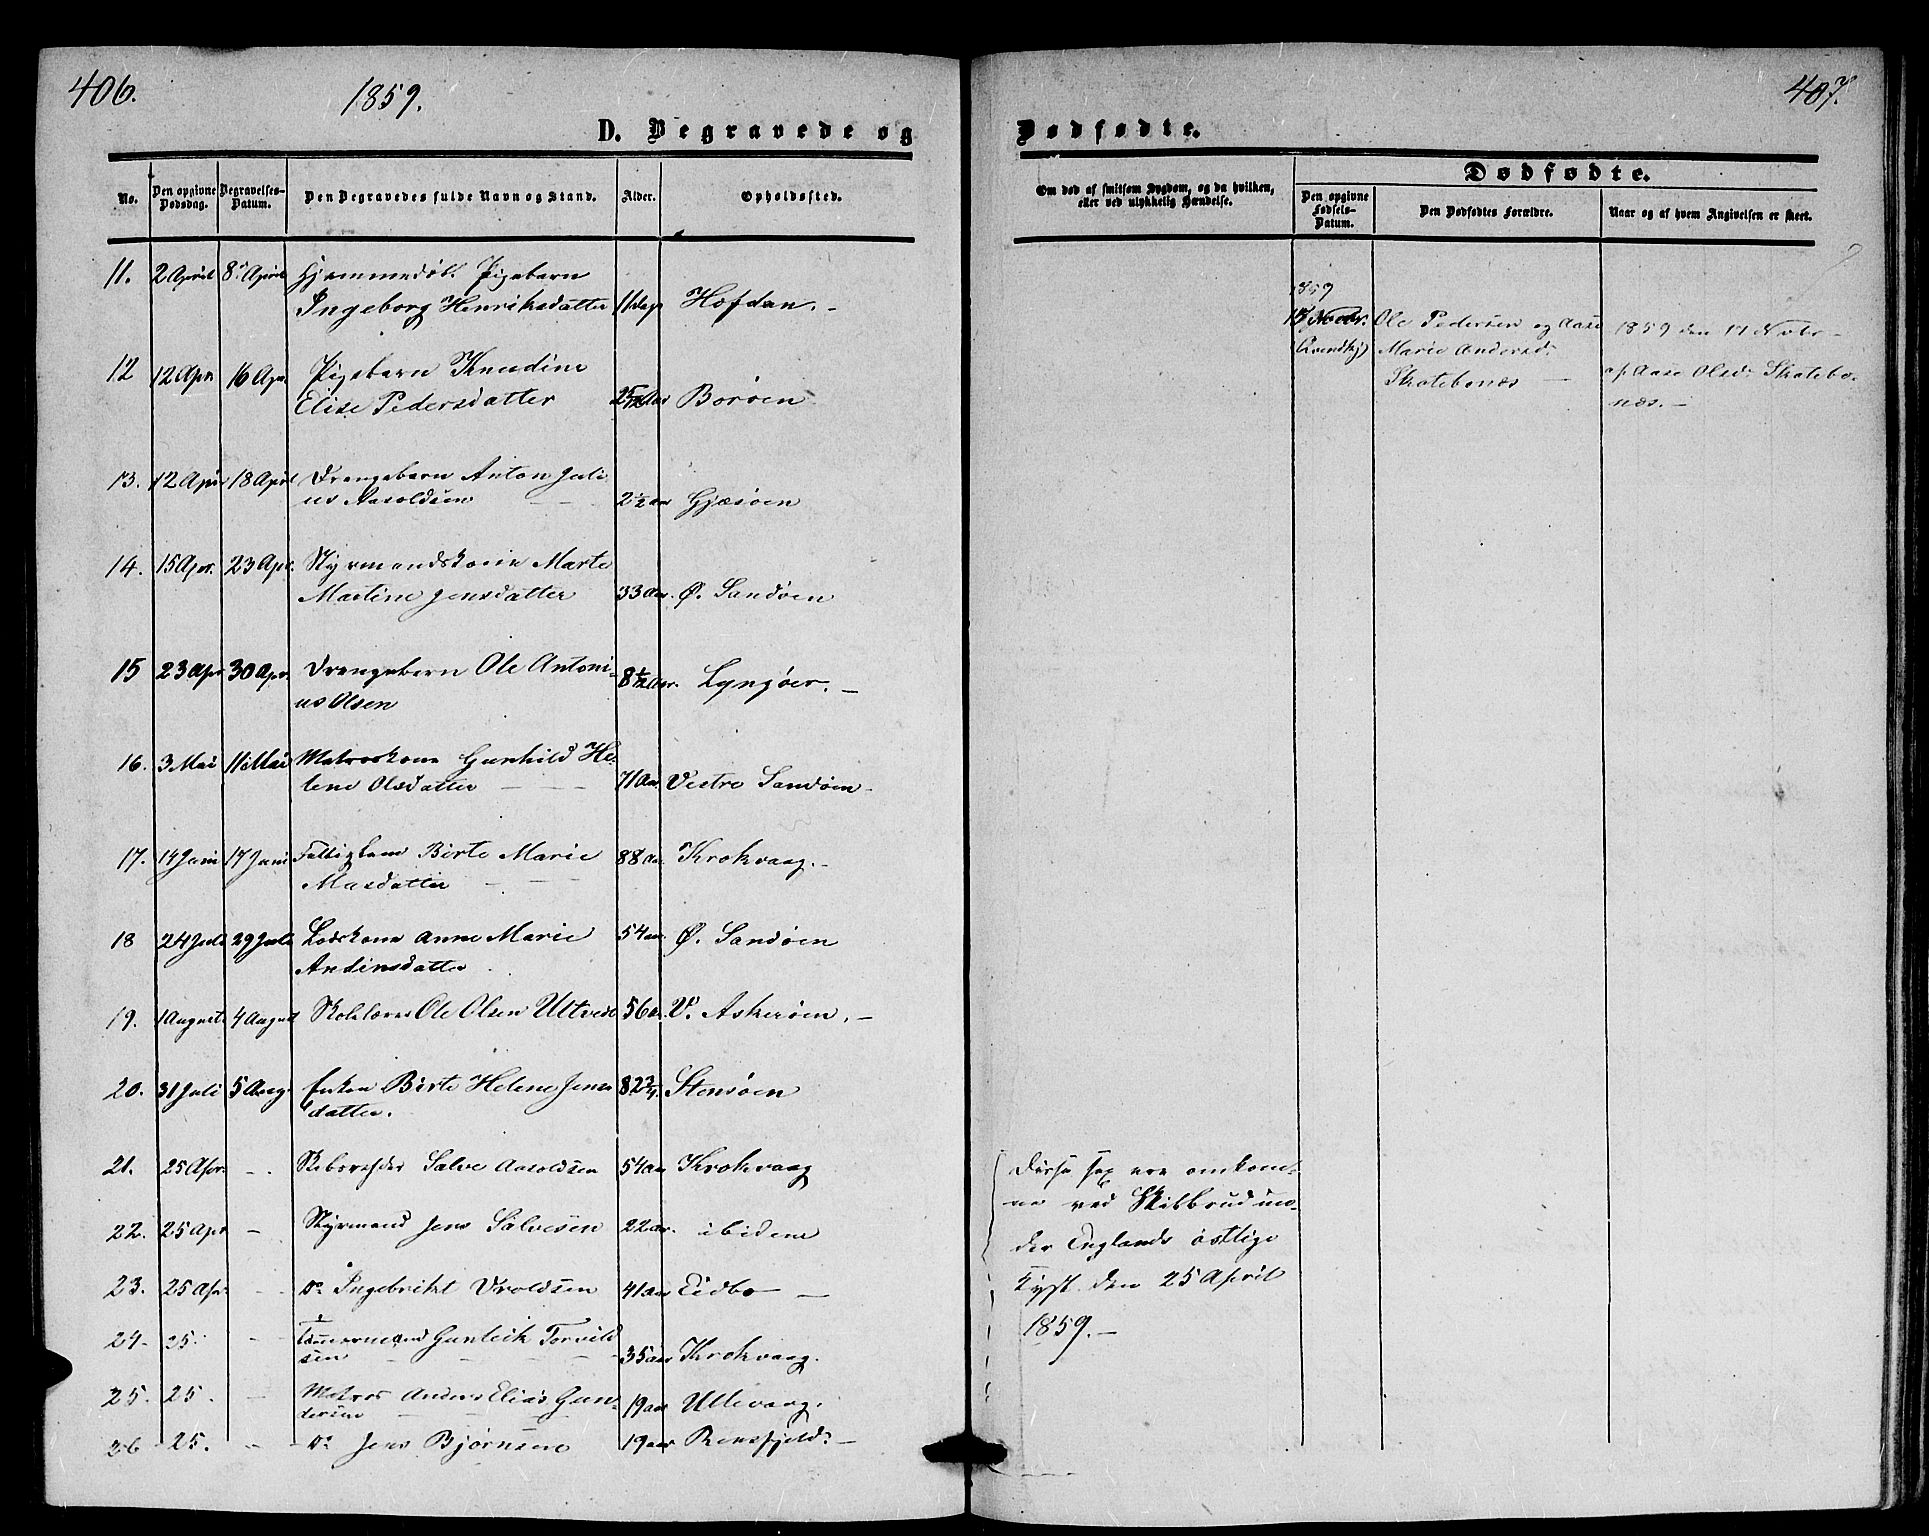 406.
1859.
D. Begravede og
No.
Den opgivne Dødsdag.
Begravelses-Datum.
Den Begravedes fulde Navn og Stand.
Alder.
Opholdssted.
11. 2 April 8de April Hjemmedøbt Pigebarn
Ingeborg Henriksdatter 11 Dage Hofdan. -
12 12 Apr 16 Apr. Pigebarn Knudine
Elise Pedersdatter Aar Borøen
13. 12 Apr 18 April Drengebarn Anton Juli
us Aasoldsen 2½ aar Gjæsøen
14. 15 Apr. 23 Apr. Styrmandskone Marte
Martine Jensdatter 33 Aar. Ø. Sandøen
15 23 Apr 30 Apr. Drengebarn Ole Antoni-
us Olsen 8½ Aar. Lyngøer. -
16. 3 Mai 11 Mai Matroskone Gunhild He-
lene Olsdatter 71 Aar Vestre Sandøen -
17. 14 Juni 17 Juni Birte Marie
Masdatter 88 aar Krokvaag. -
18 24 Juli 29 Juli Lodskone Anne Marie
Andinsdatter 54 aar. Ø. Sandøen
19. 1 August 4 August Skolelærer Ole Olsen Ultvedt 56 a. V. Askerøen. -
20. 31 Juli 5 Aug. Enken Birte Helene Jens
datter. 82¾. Stensøen
21. 25 Apr. - . Skibsreder Salve Aasoldsen 54 aar Krokvaag
22. 25 Apr - Styrmand Jens Salvesen 22 aar. ibidem
23. 25 Apr. - Do Ingebrikt Vroldsen 41 aar Eidbo -
24- 25. - Tømmermand Gunleik Torvild
sen 35 aar Krokvaag.
25. 25. - Matros Anders Elias Gun-
dersen 19 aar Ullevaag.
26 25. - Do Jens Bjørnsen 19 aar Rensfjeld. -
407.
Dødfødte.
Om død af smitsom Sygdom, og da hvilken,
eller ved ulykkelig Hændelse.
Dødfødte.
Den opgivne Fødsels-Datum.
Den Dødfødtes Forældre.
Naar og af hvem Angivelsen er skeet.
1859
Novbr. Ole Pedersen og Aase 1859 den 17 Novbr -
Marie Andersd. af Aase Olsdr Skatebo-
Skatebonæs - næs. -
Disse sex ere omkom-
ne ved Skibbrud un-
der Englands østlige
Kyst den 25 April
1859. -